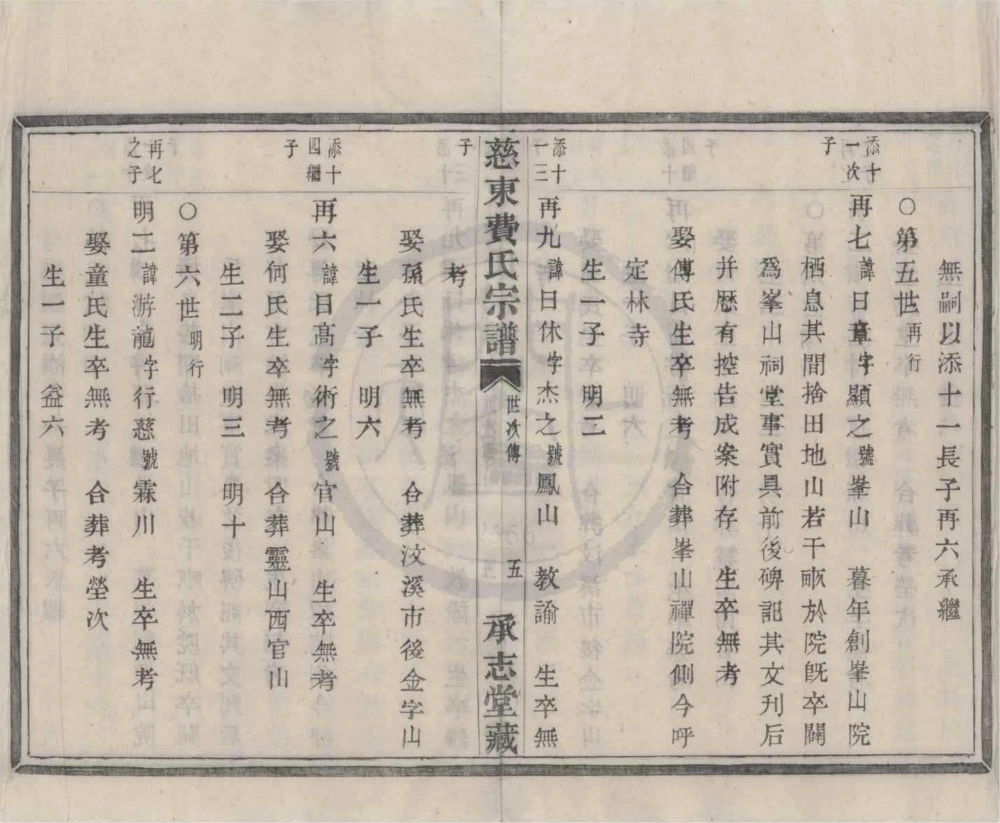 無嗣以添十一長子再六承繼
○第五世再行
添十一次子
再七諱日章字顯之號峯山　暮年創峯山院
栖息其間捨田地山若干畝於院旣卒闢
爲峯山祠堂事實具前後碑記其文刋后
并歷有控告成案附存　生卒無考
娶傅氏生卒無考　合葬峯山禪院側今呼
定林寺
生一子　明二
添十一三子
再九諱日休字杰之號鳳山　教諭　生卒無
考
娶孫氏生卒無考　合葬汶溪市後金字山
生一子　明六
添十四繼子
再六諱日高字術之號官山　生卒無考
娶何氏生卒無考　合葬靈山西官山
生二子　明三　明十
○第六世明行
再七之子
明二諱游龍字行慈號霖川　生卒無考
娶童氏生卒無考　合葬考塋次
生一子　益六
慈東費氏宗譜　世次傳　五　承志堂藏